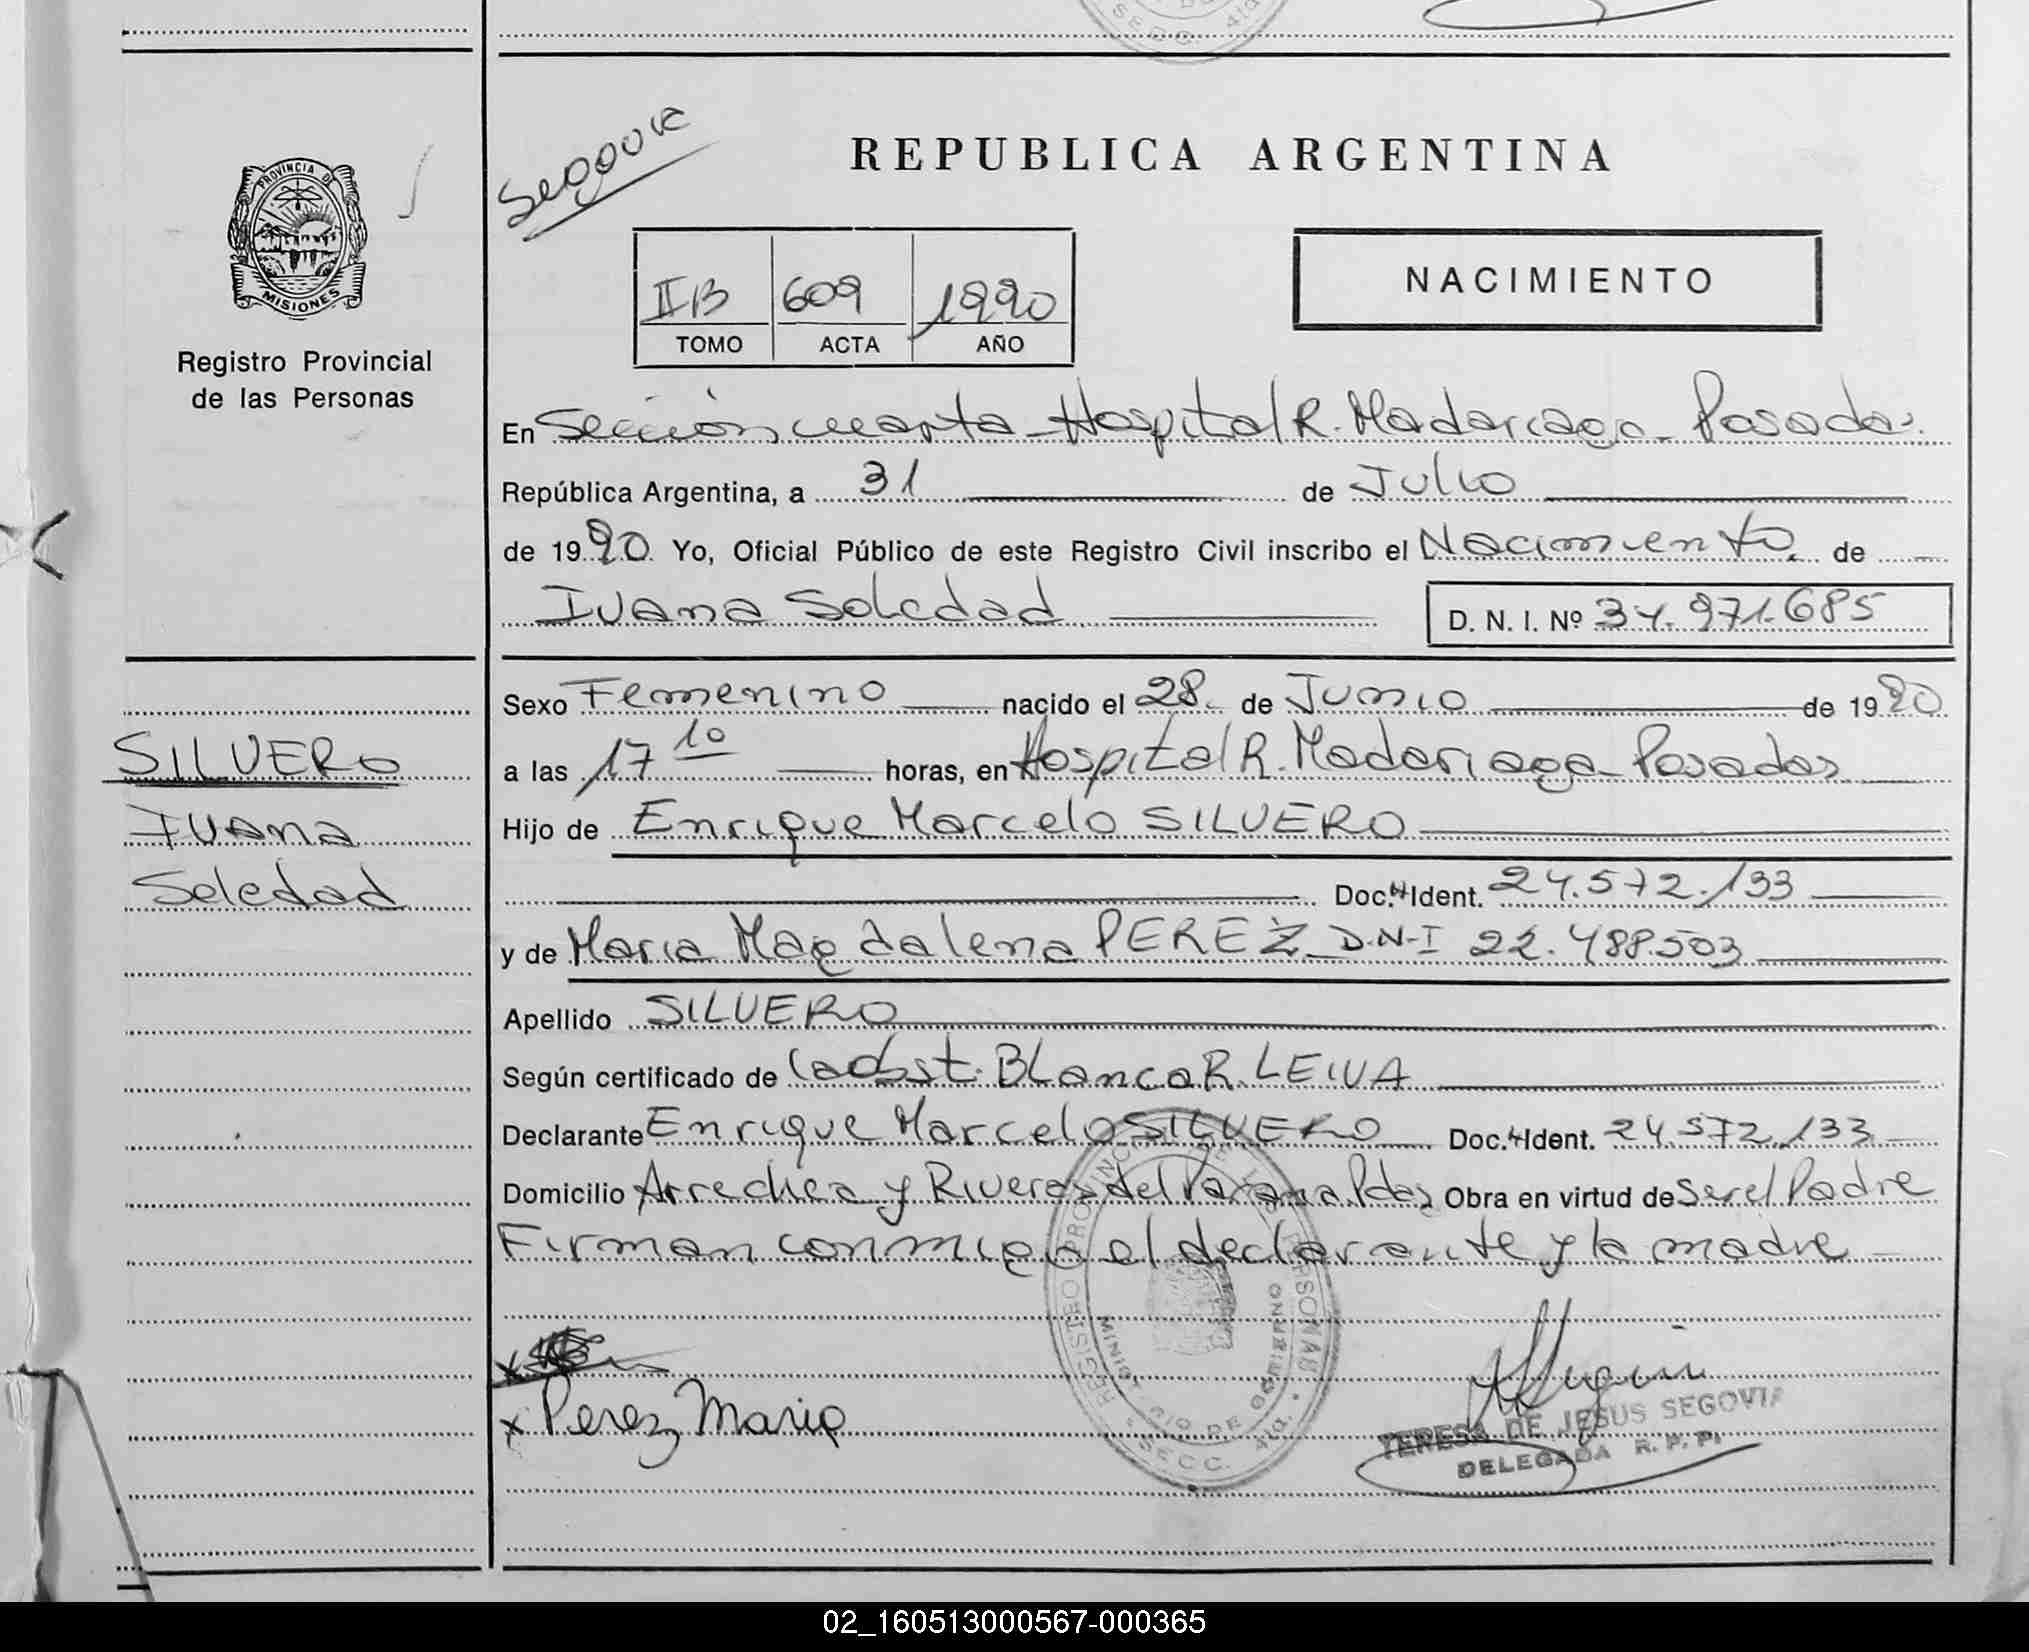 SECC. 4ta.
PROVINCIA DE
MISIONES
Registro Provincial
de las Personas
Segovia
REPUBLICA ARGENTINA
II B 609 1990
TOMO ACTA AÑO
NACIMIENTO
En Sección cuarta - Hospital R. Madariaga - Posadas.
República Argentina, a 31 de Julio
de 1990 Yo, Oficial Público de este Registro Civil inscribo el Nacimiento. de
Ivana Soledad D. N. I. Nº 34.971.685
Sexo Femenino nacido el 28 de Junio de 1990
SILVERO
a las 17 10 horas, en Hospital R. Madariaga - Posadas
Ivana
Hijo de Enrique Marcelo SILVERO
Soledad
Doc. Ident. 24.572.133
y de Maria Magdalena PEREZ D-N-I 22.488.503
Apellido SILVERO
Según certificado de la Obst. Blanca R. LEIVA
Declarante Enrique Marcelo SILVERO Doc. Ident. 24.572.133
Domicilio Arrechea y Riveras del Parana Pdas Obra en virtud de Ser el Padre
Firman conmigo el declarante y la madre
REGISTRO PROVINCIAL DE LAS PERSONAS
MINISTERIO DE GOBIERNO
SECC. 4ta.
x
x Perez Maria
TERESA DE JESUS SEGOVIA
DELEGADA R. P. P.
02_160513000567-000365